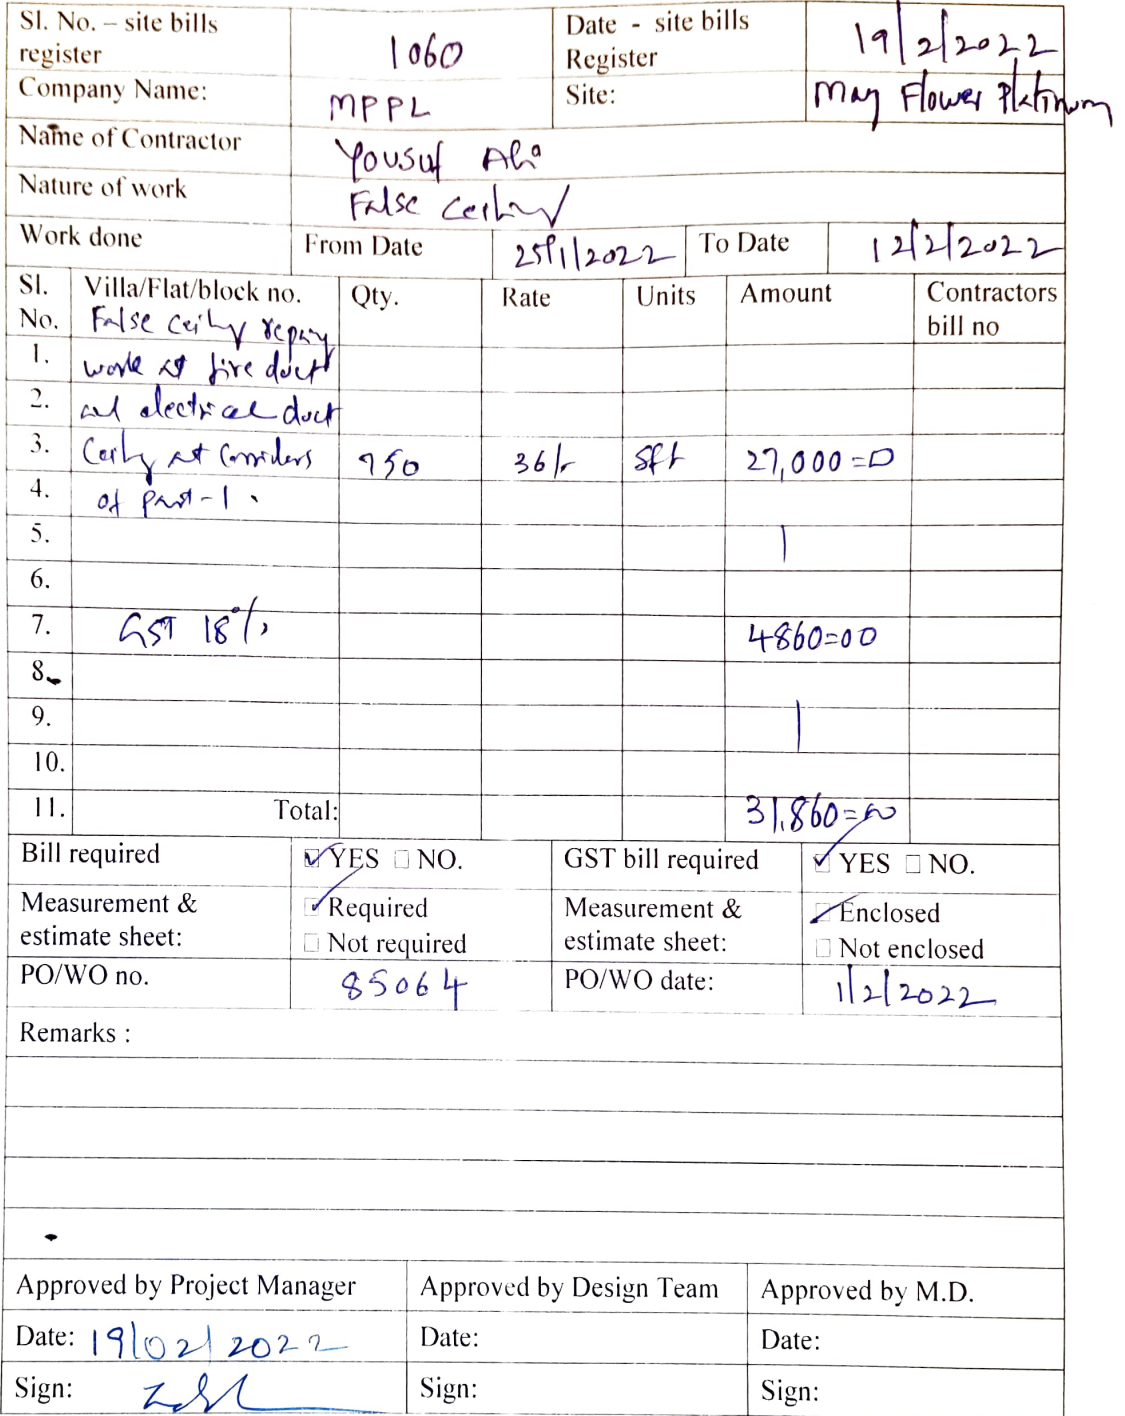 Sl. No. – site bills register 1060 Date - site bills Register 19/2/2022
Company Name: MPPL Site: May Flower Platinum
Name of Contractor Yousuf Ali
Nature of work False Ceiling
Work done From Date 25/1/2022 To Date 12/2/2022
Sl. No. Villa/Flat/block no. Qty. Rate Units Amount Contractors bill no
False ceiling repair
1. work at fire duct
2. and electrical duct
3. Ceiling at Corridors 750 36/- Sft 27,000=0
4. of part-1.
5.
6.
7. GST 18% 4860=00
8.
9.
10.
11. Total: 31,860=00
Bill required YES NO. GST bill required YES NO.
Measurement & estimate sheet: Required Not required Measurement & estimate sheet: Enclosed Not enclosed
PO/WO no. 85064 PO/WO date: 1/2/2022
Remarks :
Approved by Project Manager Approved by Design Team Approved by M.D.
Date: 19/02/2022 Date: Date:
Sign: Sign: Sign: